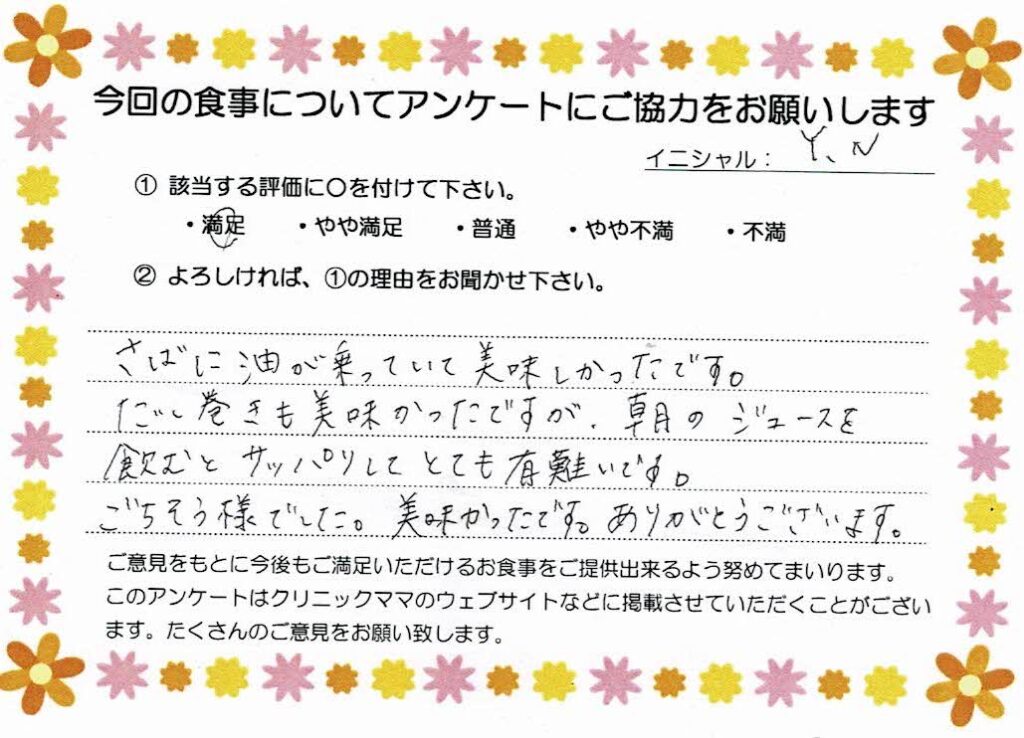 今回の食事についてアンケートにご協力をお願いします
イニシャル： Y、N
① 該当する評価に〇を付けて下さい。
・満足 ・やや満足 ・普通 ・やや不満 ・不満
② よろしければ、①の理由をお聞かせ下さい。
さばに油が乗っていて美味しかったです。
だし巻きも美味かったですが、朝のジュースを
飲むとサッパリしてとても有難いです。
ごちそう様でした。美味かったです。ありがとうございます。
ご意見をもとに今後もご満足いただけるお食事をご提供出来るよう努めてまいります。
このアンケートはクリニックママのウェブサイトなどに掲載させていただくことがござい
ます。たくさんのご意見をお願い致します。